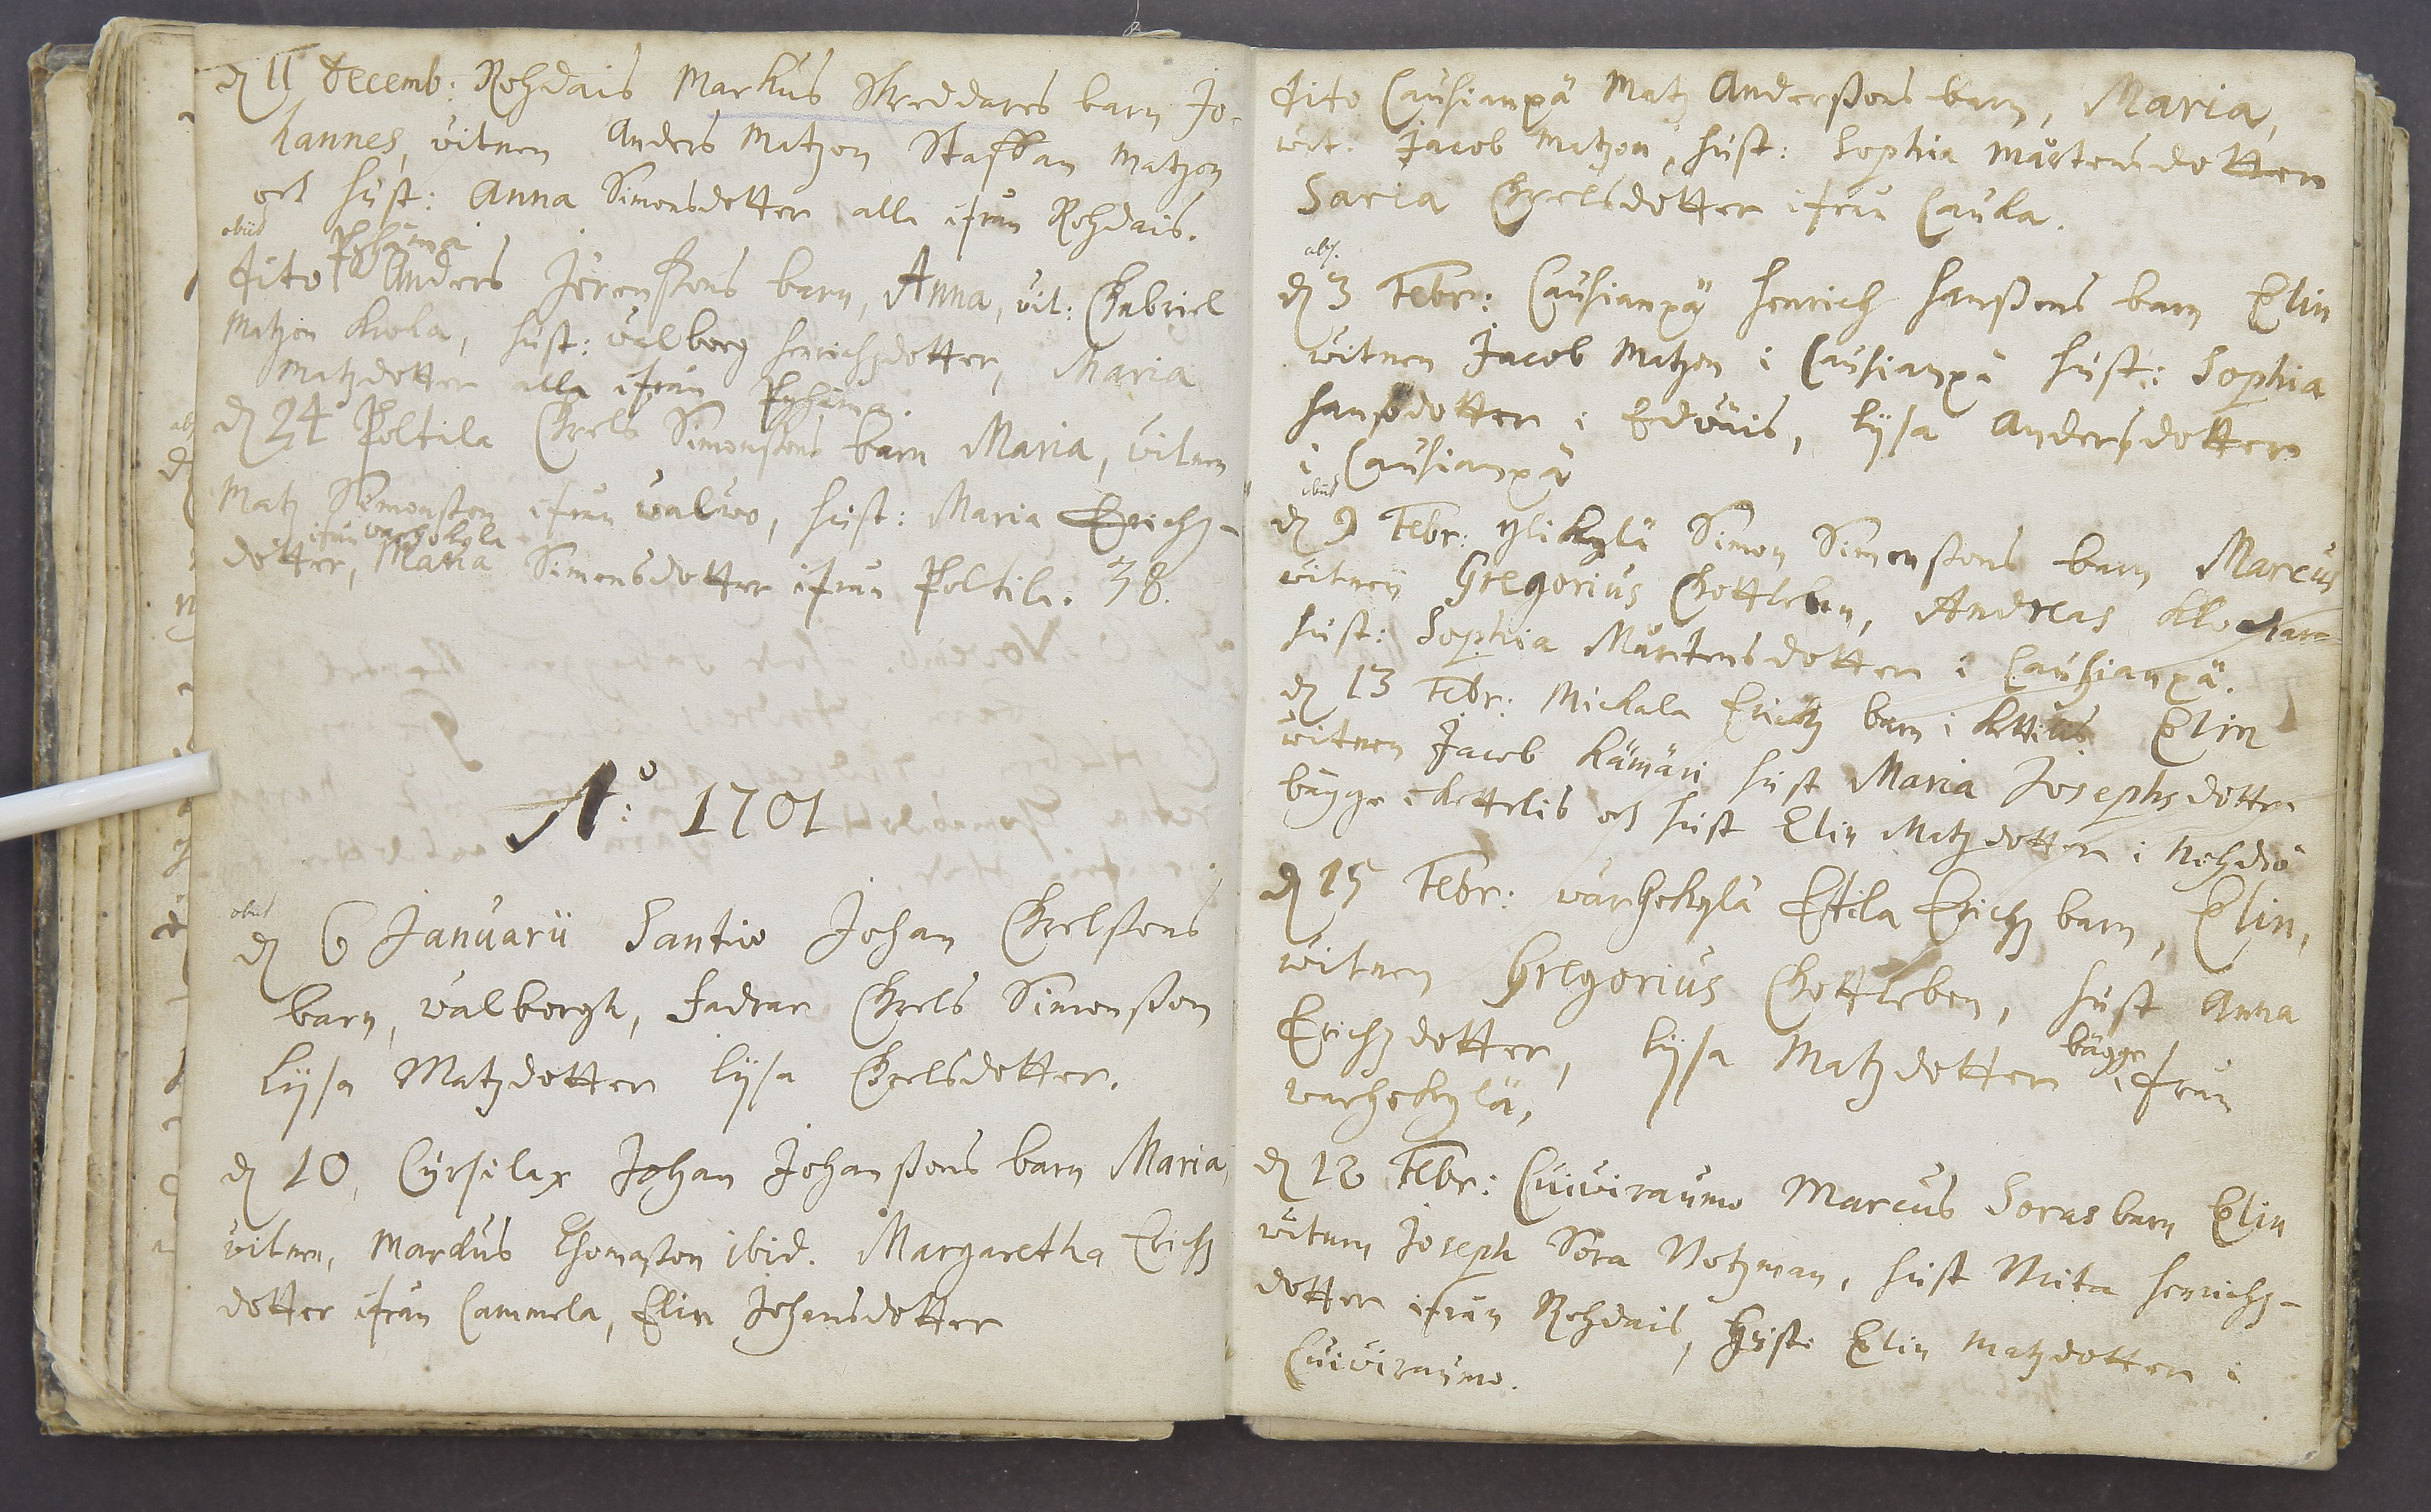 d 11 Decemb: Rohdais Markus Skreddares barn Jo-
hannes, vitnen Anders Matzon Staffan Matzon
och hust: Anna Simonsdotter alla ifrån Rohdais.
obiit
Pyhämä
dito Anders Jörenßons barn, Anna, vit: Gabriel
Matzon Krola, hust: Walborg Henrichzdotter, Maria
Matzdotter alla ifrån Pyhäma.
d 24 Poltila Grels Simonßons barn Maria, vitnen
Matz Simonßon ifrån Walwo, hust: Maria Erichz-
ifrån Warhokyla
dotter, Maria Simonsdotter ifrån Poltila. 38.
A:o 1701
obiit
d 6 Januarii Santio Johan Grelsßons
barn, Walborgh, fadrar Grels Simonßon
Lijsa Matzdotter Lijsa Grelsdotter.
d 10, Cyrsilax Johan Johanßons barn Maria,
vitnen, Markus Thomaßon ibid. Margaretha Erichz
dotter ifrån Cammela, Elin Johansdotter
dito Causianpä Matz Anderßons barn, Maria,
wit. Jacob Matzon, hust: Sophia Mårtensdotter
Saria Grelsdotter ifrån Cauka.
abs.
d 3 Febr: Causianpä Henrich Hanßons barn Elin
witnen Jacob Matzon i Causianpä hust: Sophia
Hansdotter i Edväis, Lijsa Andersdotter
i Causianpä
obiit
d 9 Febr: Ylikylä Simon Simonßons barn Marcus
witnen Gregorius Gottleben, Andreas Klockare
hust: Sophia Mårtensdotter i Causianpä.
d 13 Febr: Mickala Erichz barn i Kettelis Elin
witnen Jacob Kämäri hust Maria Josephsdotter
bägge i Kettelis och hust Elin Matzdotter i Nohdiö
d 15 Febr: Warhokylä Eskila Erichz barn, Elin,
witnen Gregorius Gottleben, hust Anna
Erichzdotter, Lijsa Matzdotter bägge ifrån
Warhokylä,
d 18 Febr: Cuiviraumo Marcus Soras barn Elin
witnen Joseph Sora Notzman, hust Brita Henrichz-
dotter ifrån Rohdais, Hust: Elin Matzdotter i
Cuiviraumo.